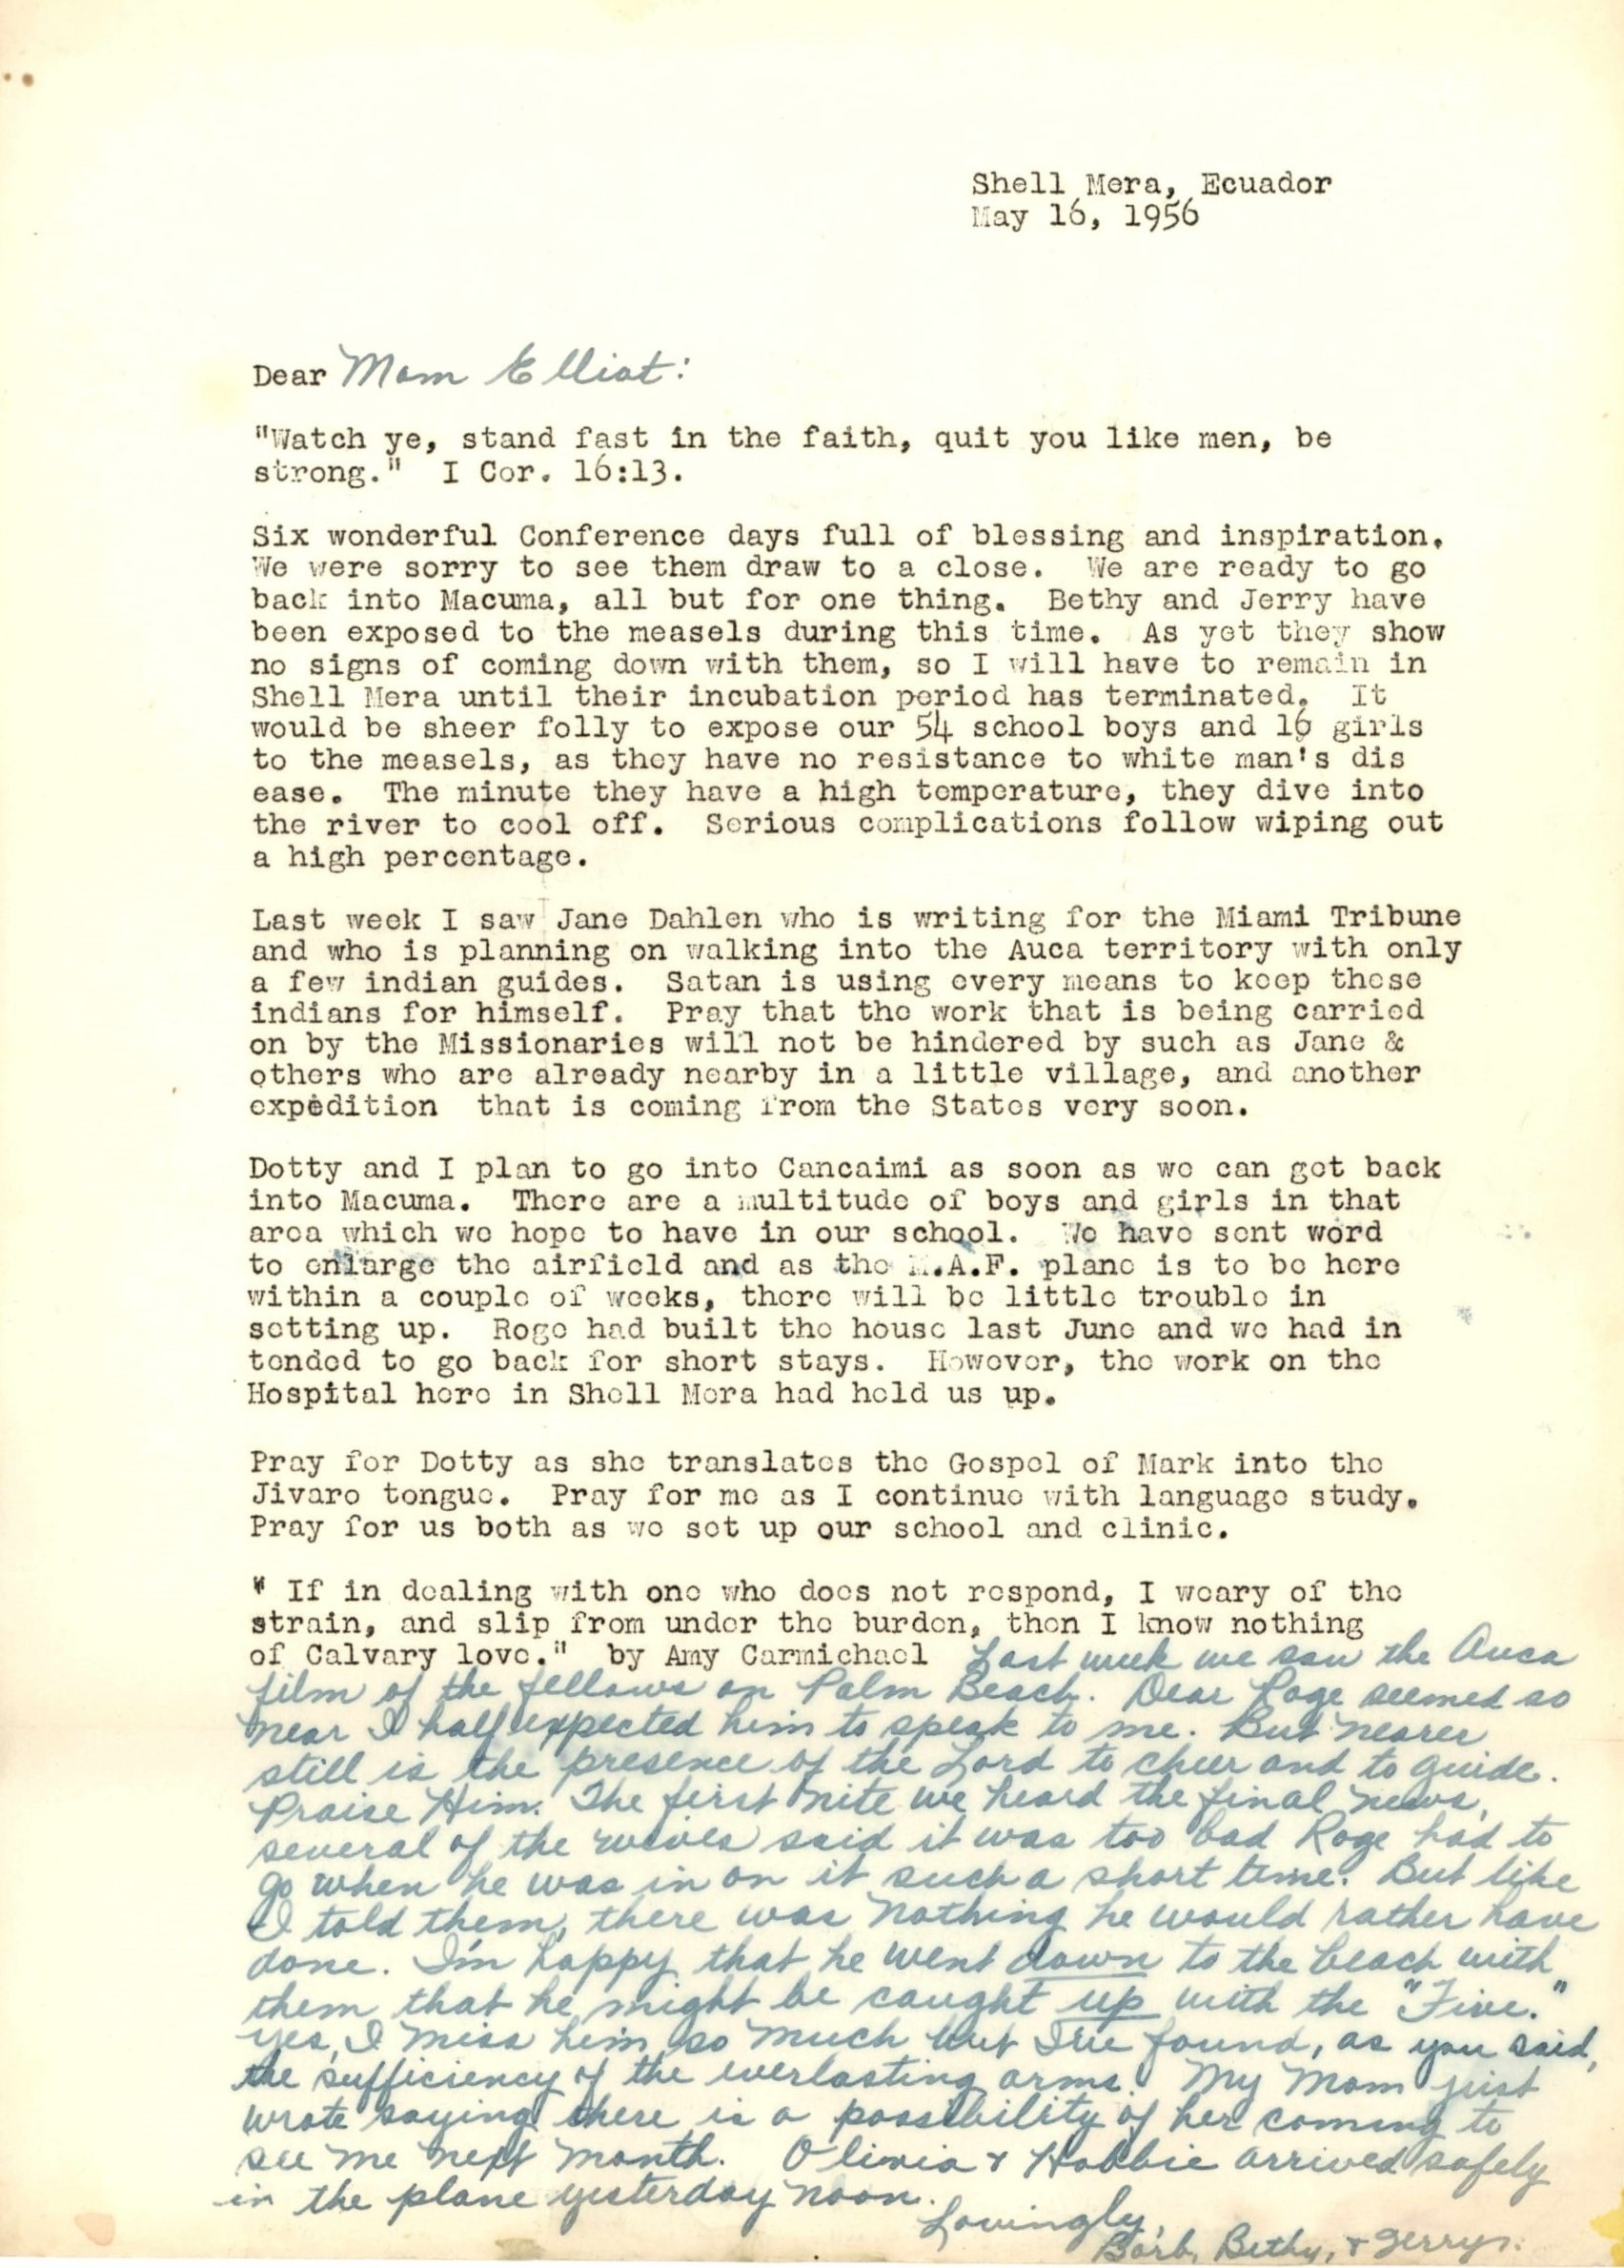 Shell Mera, Ecuador
May 16, 1956
Dear Mom Elliot:
"Watch ye, stand fast in the faith, quit you like men, be
strong." I Cor. 16:13.
Six wonderful Conference days full of blessing and inspiration.
We were sorry to see them draw to a close. We are ready to go
back into Macuma, all but for one thing. Bethy and Jerry have
been exposed to the measels during this time. As yet they show
no signs of coming down with them, so I will have to remain in
Shell Mera until their incubation period has terminated. It
would be sheer folly to expose our 54 school boys and 16 girls
to the measels, as they have no resistance to white man's dis
ease. The minute they have a high temperature, they dive into
the river to cool off. Serious complications follow wiping out
a high percentage.
Last week I saw Jane Dahlen who is writing for the Miami Tribune
and who is planning on walking into the Auca territory with only
a few indian guides. Satan is using every means to keep these
indians for himself. Pray that the work that is being carried
on by the Missionaries will not be hindered by such as Jane &
others who are already nearby in a little village, and another
expedition that is coming from the States very soon.
Dotty and I plan to go into Cancaimi as soon as we can get back
into Macuma. There are a multitude of boys and girls in that
area which we hope to have in our school. We have sent word
to enlarge the airfield and as the M.A.F. plane is to be here
within a couple of weeks, there will be little trouble in
setting up. Roge had built the house last June and we had in
tended to go back for short stays. However, the work on the
Hospital here in Shell Mera had held us up.
Pray for Dotty as she translates the Gospel of Mark into the
Jivaro tongue. Pray for me as I continue with language study.
Pray for us both as we set up our school and clinic.
" If in dealing with one who does not respond, I weary of the
strain, and slip from under the burden, then I know nothing
of Calvary love." by Amy Carmichael Last week we saw the Auca
film of the fellows on Palm Beach. Dear Roge seemed so
near I half expected him to speak to me. But nearer
still is the presence of the Lord to cheer and to guide.
Praise Him. The first nite we heard the final news,
several of the wives said it was too bad Roge had to
go when he was in on it such a short time. But like
I told them, there was nothing he would rather have
done. I'm happy that he went down to the beach with
them that he might be caught up with the "Five."
Yes, I miss him so much but I've found, as you said,
the sufficiency of the everlasting arms. My Mom just
wrote saying there is a possibility of her coming to
see me next month. Olivia & Hobbie arrived safely
in the plane yesterday noon.
Lovingly,
Barb, Bethy, & Jerry.